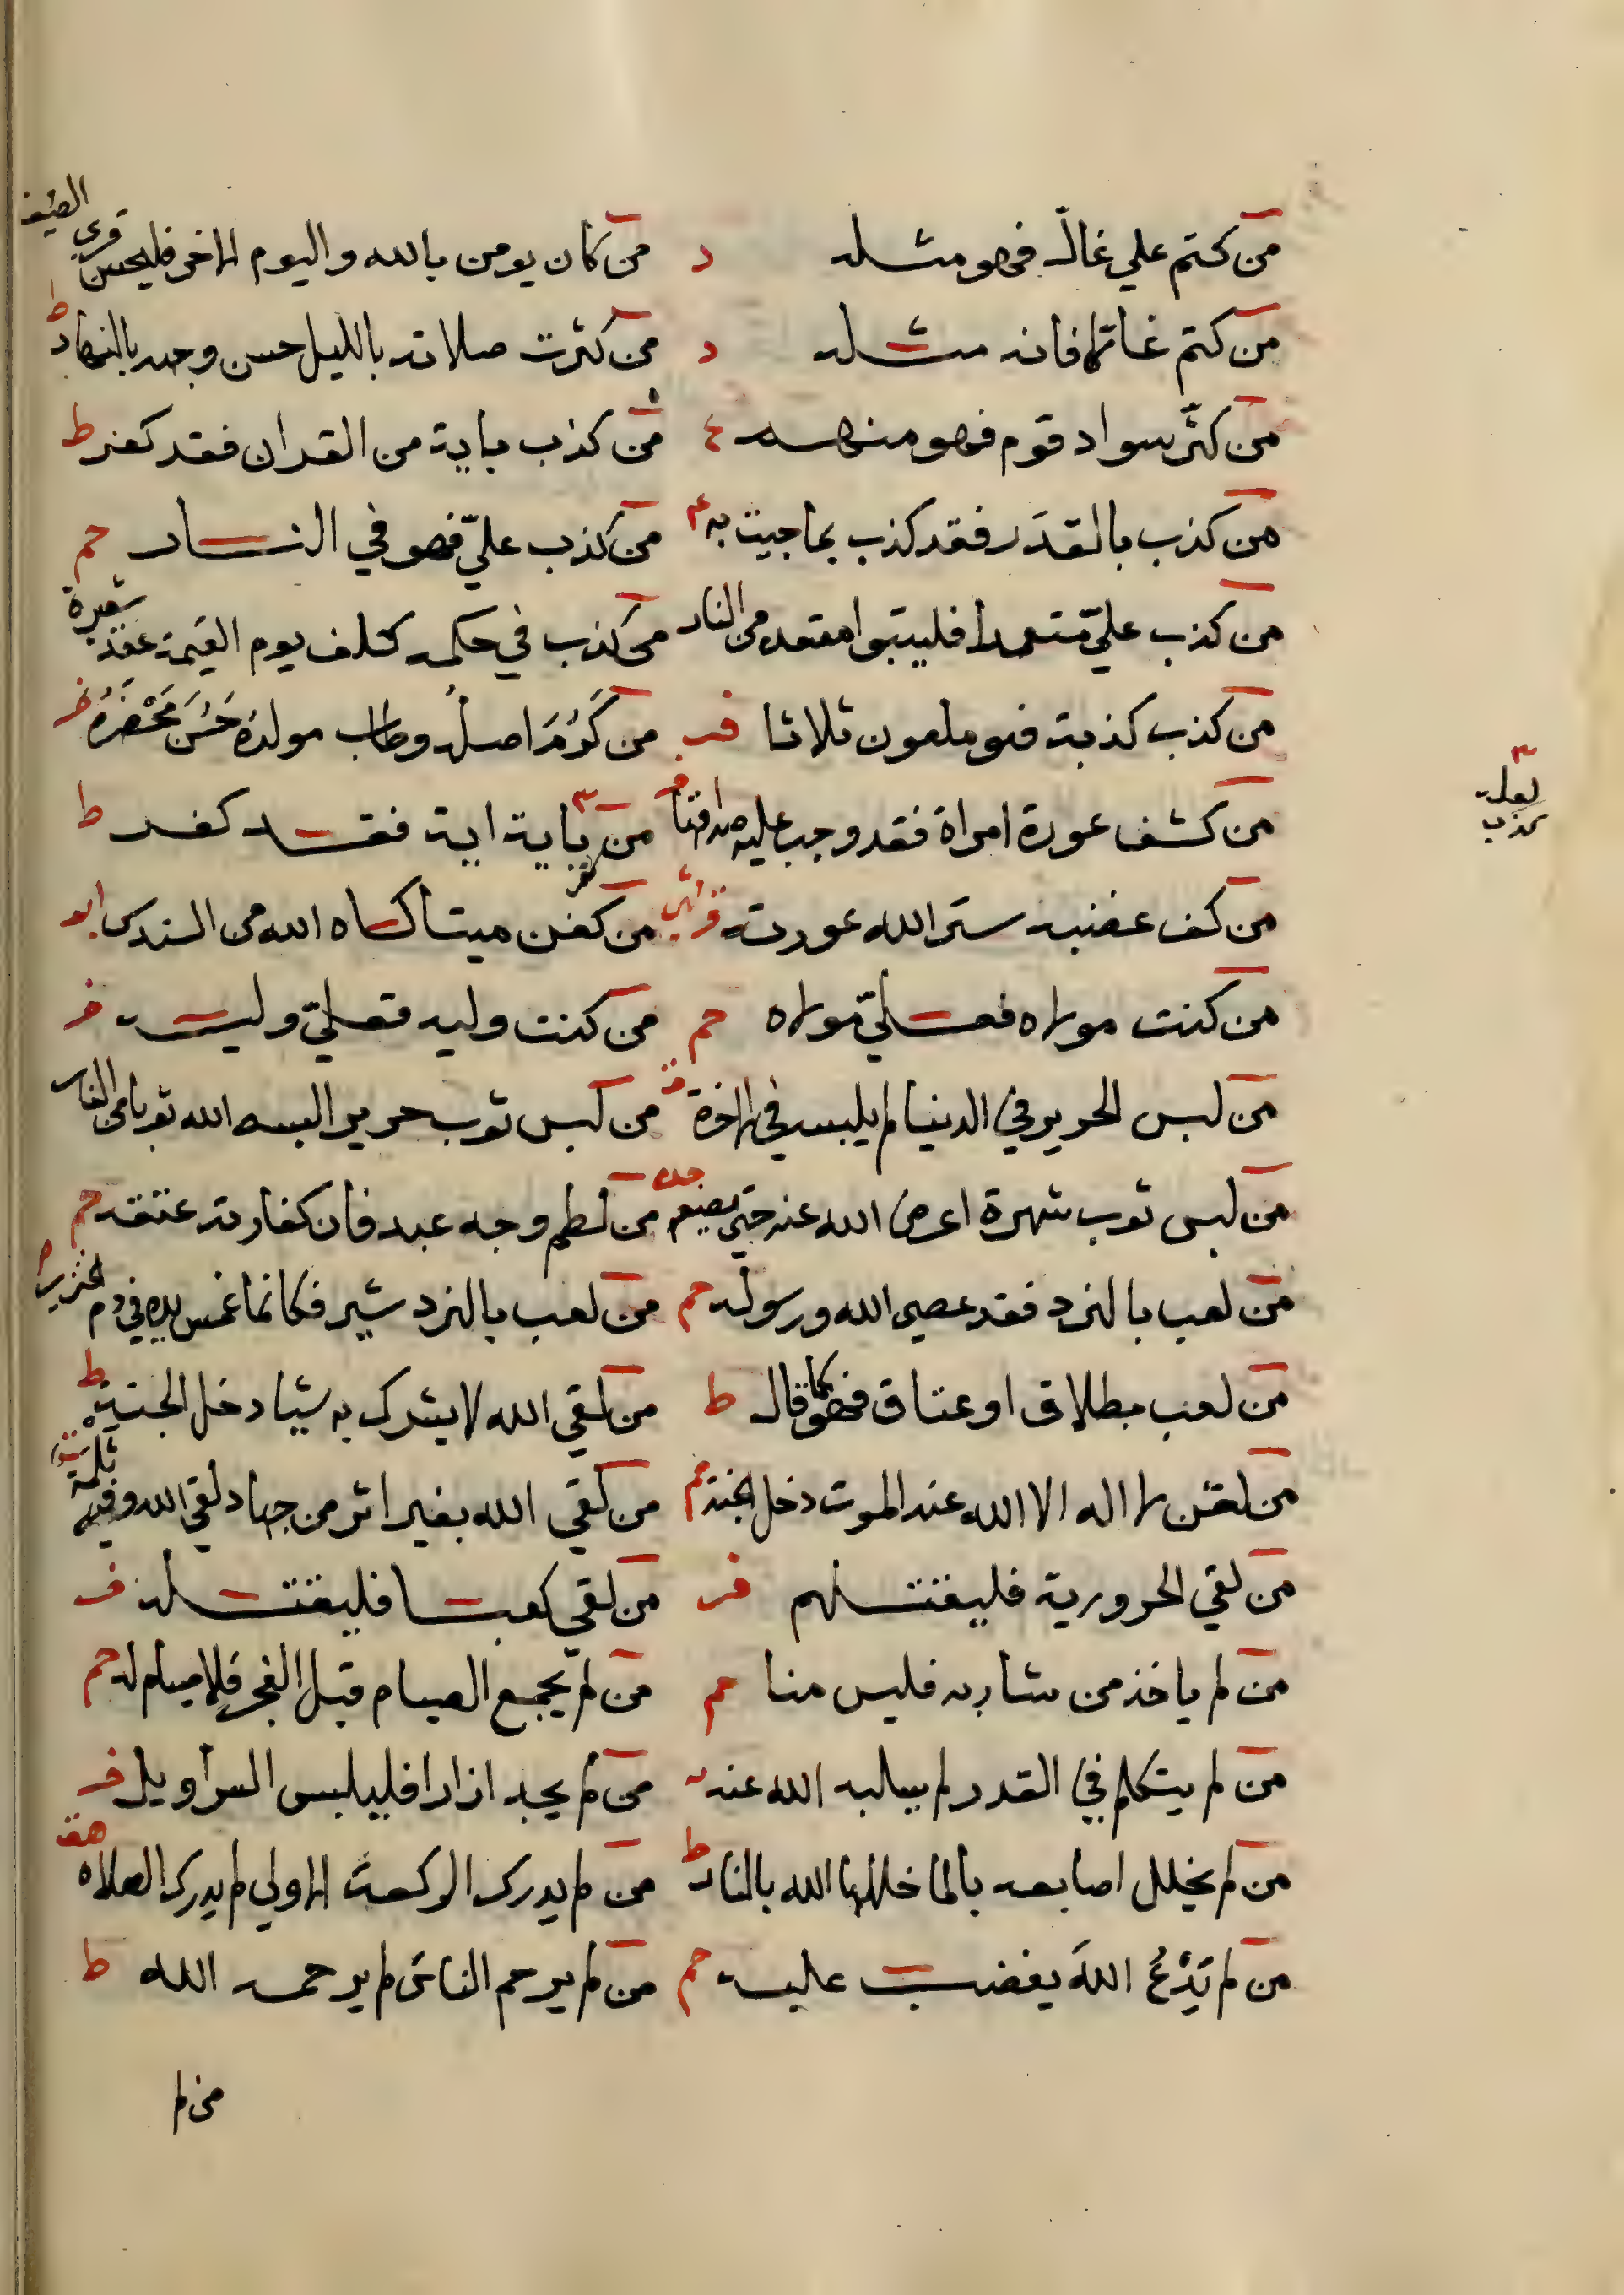 من كتم علي غال فهو مثله د من كان يومن بالله واليوم الاخر فليحسن قري الضيف
من كتم غالا فانه مثله د من كثرت صلاته بالليل حسن وجهه بالنهار ط
من كثّر سواد قوم فهو منهم ع من كذب باية من القران فقد كفر ط
من كذب بالقدَر فقد كذب بما جيت به عم من كذب عليّ فهو في النار حم
من كذب عليّ متعمدا فليتبوا مقعده من النار من كذب في حكمه كلف يوم القيمة عقد شعيرة
من كذب كذبة فهو ملعون ثلاثا فر من كَرُمَ اصلُه وطاب مولدُه حَسُنَ مَحْضَرُه فر
من كشف عورة امراة فقد وجب عليه صداقها من باية اية فقد كفر ط
من كف غضبه ستر الله عورته من كفن ميتا كساه الله من السندس ابو
من كنت مولاه فعليّ مولاه حم من كنت وليه فعليّ وليه فر
من لبس الحرير في الدنيا لم يلبسه في الاخرة ق من لبس ثوب حرير البسه الله ثوبا من النار
من لبس ثوب شهرة اعرض الله عنه حتي يضعه من لطم وجه عبد فان كفارته عتقه حم
من لعب بالنرد فقد عصي الله ورسوله حم من لعب بالنردشير فكانما غمس يده في دم خنزير م
من لعب بطلاق او عتاق فهو كما قال ط من لقي الله لا يشرك به شيا دخل الجنة ط
من لقن لا اله الا الله عند الموت دخل الجنة حم من لقي الله بغير اثر من جهاد لقي الله وفيه ثلمة
من لقي الحرورية فليقتلهم فر من لقي كعبا فليقتله ف
من لم ياخذ من شاربه فليس منا حم من لم يجمع الصيام قبل الفجر فلا صيام له حم
من لم يتكلم في القدر لم يساله الله عنه من لم يجد ازارا فليلبس السراويل فر
من لم يخلل اصابعه بالما خللها الله بالنار ط من لم يدرك الركعة الاولي لم يدرك الصلاه هق
من لم يَدْعُ اللهَ يغضب عليه حم من لم يرحم الناس لم يرحمه الله ط
من لم
لعله
كذب